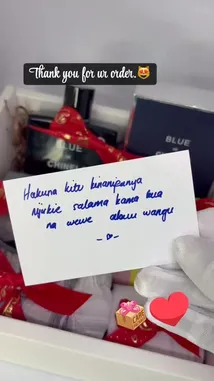 Thank you for ur order.😻
BLUE
CHANEL
BLUE
CHANEL
Hakuna kitu kinanipanya
Njiskie salama kama kua
na wewe akum wangu